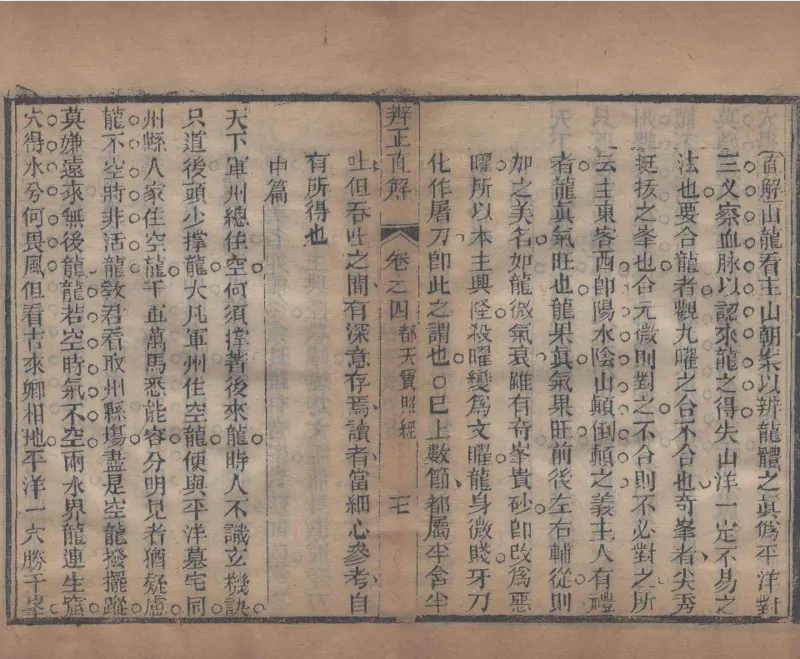 直解山龍看主山朝案以辨龍體之眞僞平洋對
三义察血脉以認來龍之得失山洋一定不易之
法也要合龍者觀九曜之合不合也奇峯者尖秀
挺拔之峯也合元微則對之不合則不必對之所
云主東客西卽陽水陰山顛倒顛之義主人有禮
者龍眞氣旺也龍果眞氣果旺前後左右輔從則
加之美名如龍微氣衰雖有奇峯貴砂卽改爲惡
曜所以本主興隆殺曜變爲文曜龍身微賤牙刀
化作屠刀卽此之謂也○巳上數節都屬半含半
辨正直解 卷之四 都天寶照經 十七
吐但吞吐之間有深意存焉讀者當細心參考自
有所得也
中篇
天下軍州總住空何須撑著後來龍時人不識玄機訣
只道後頭少撑龍大凡軍州住空龍便與平洋墓宅同
州縣人家住空龍千軍萬馬悉能容分明見者猶疑慮
龍不空時非活龍敎君看取州縣塲盡是空龍撥擺蹤
莫嫌遠來無後龍龍若空時氣不空兩水界龍連生窟
穴得水兮何畏風但看古來卿相地平洋一穴勝千峯